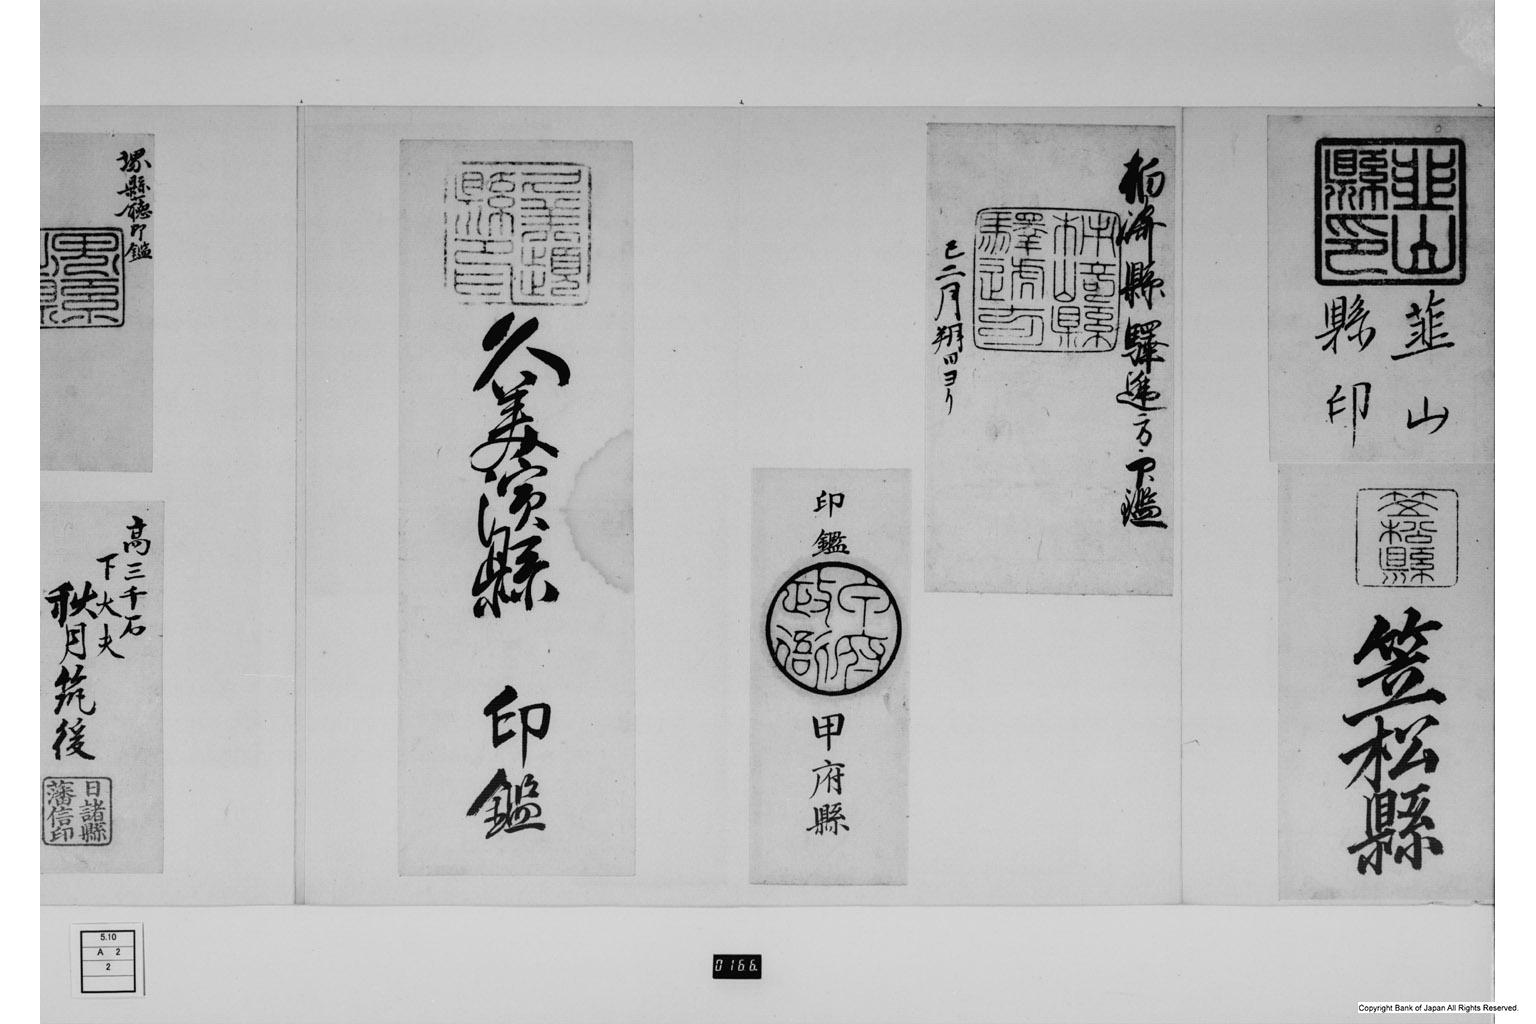 韮山
縣印
韮山
縣印
笠松縣
笠松縣
縣驛逓方
鑑
巳二月朔
ヨリ
印鑑
甲府縣
久美濱縣
印鑑
堺縣廳印鑑
高三千石
下大夫
秋月筑後
日諸縣
藩信印
5.10
A 2
2
0166
Copyright Bank of Japan All Rights Reserved.